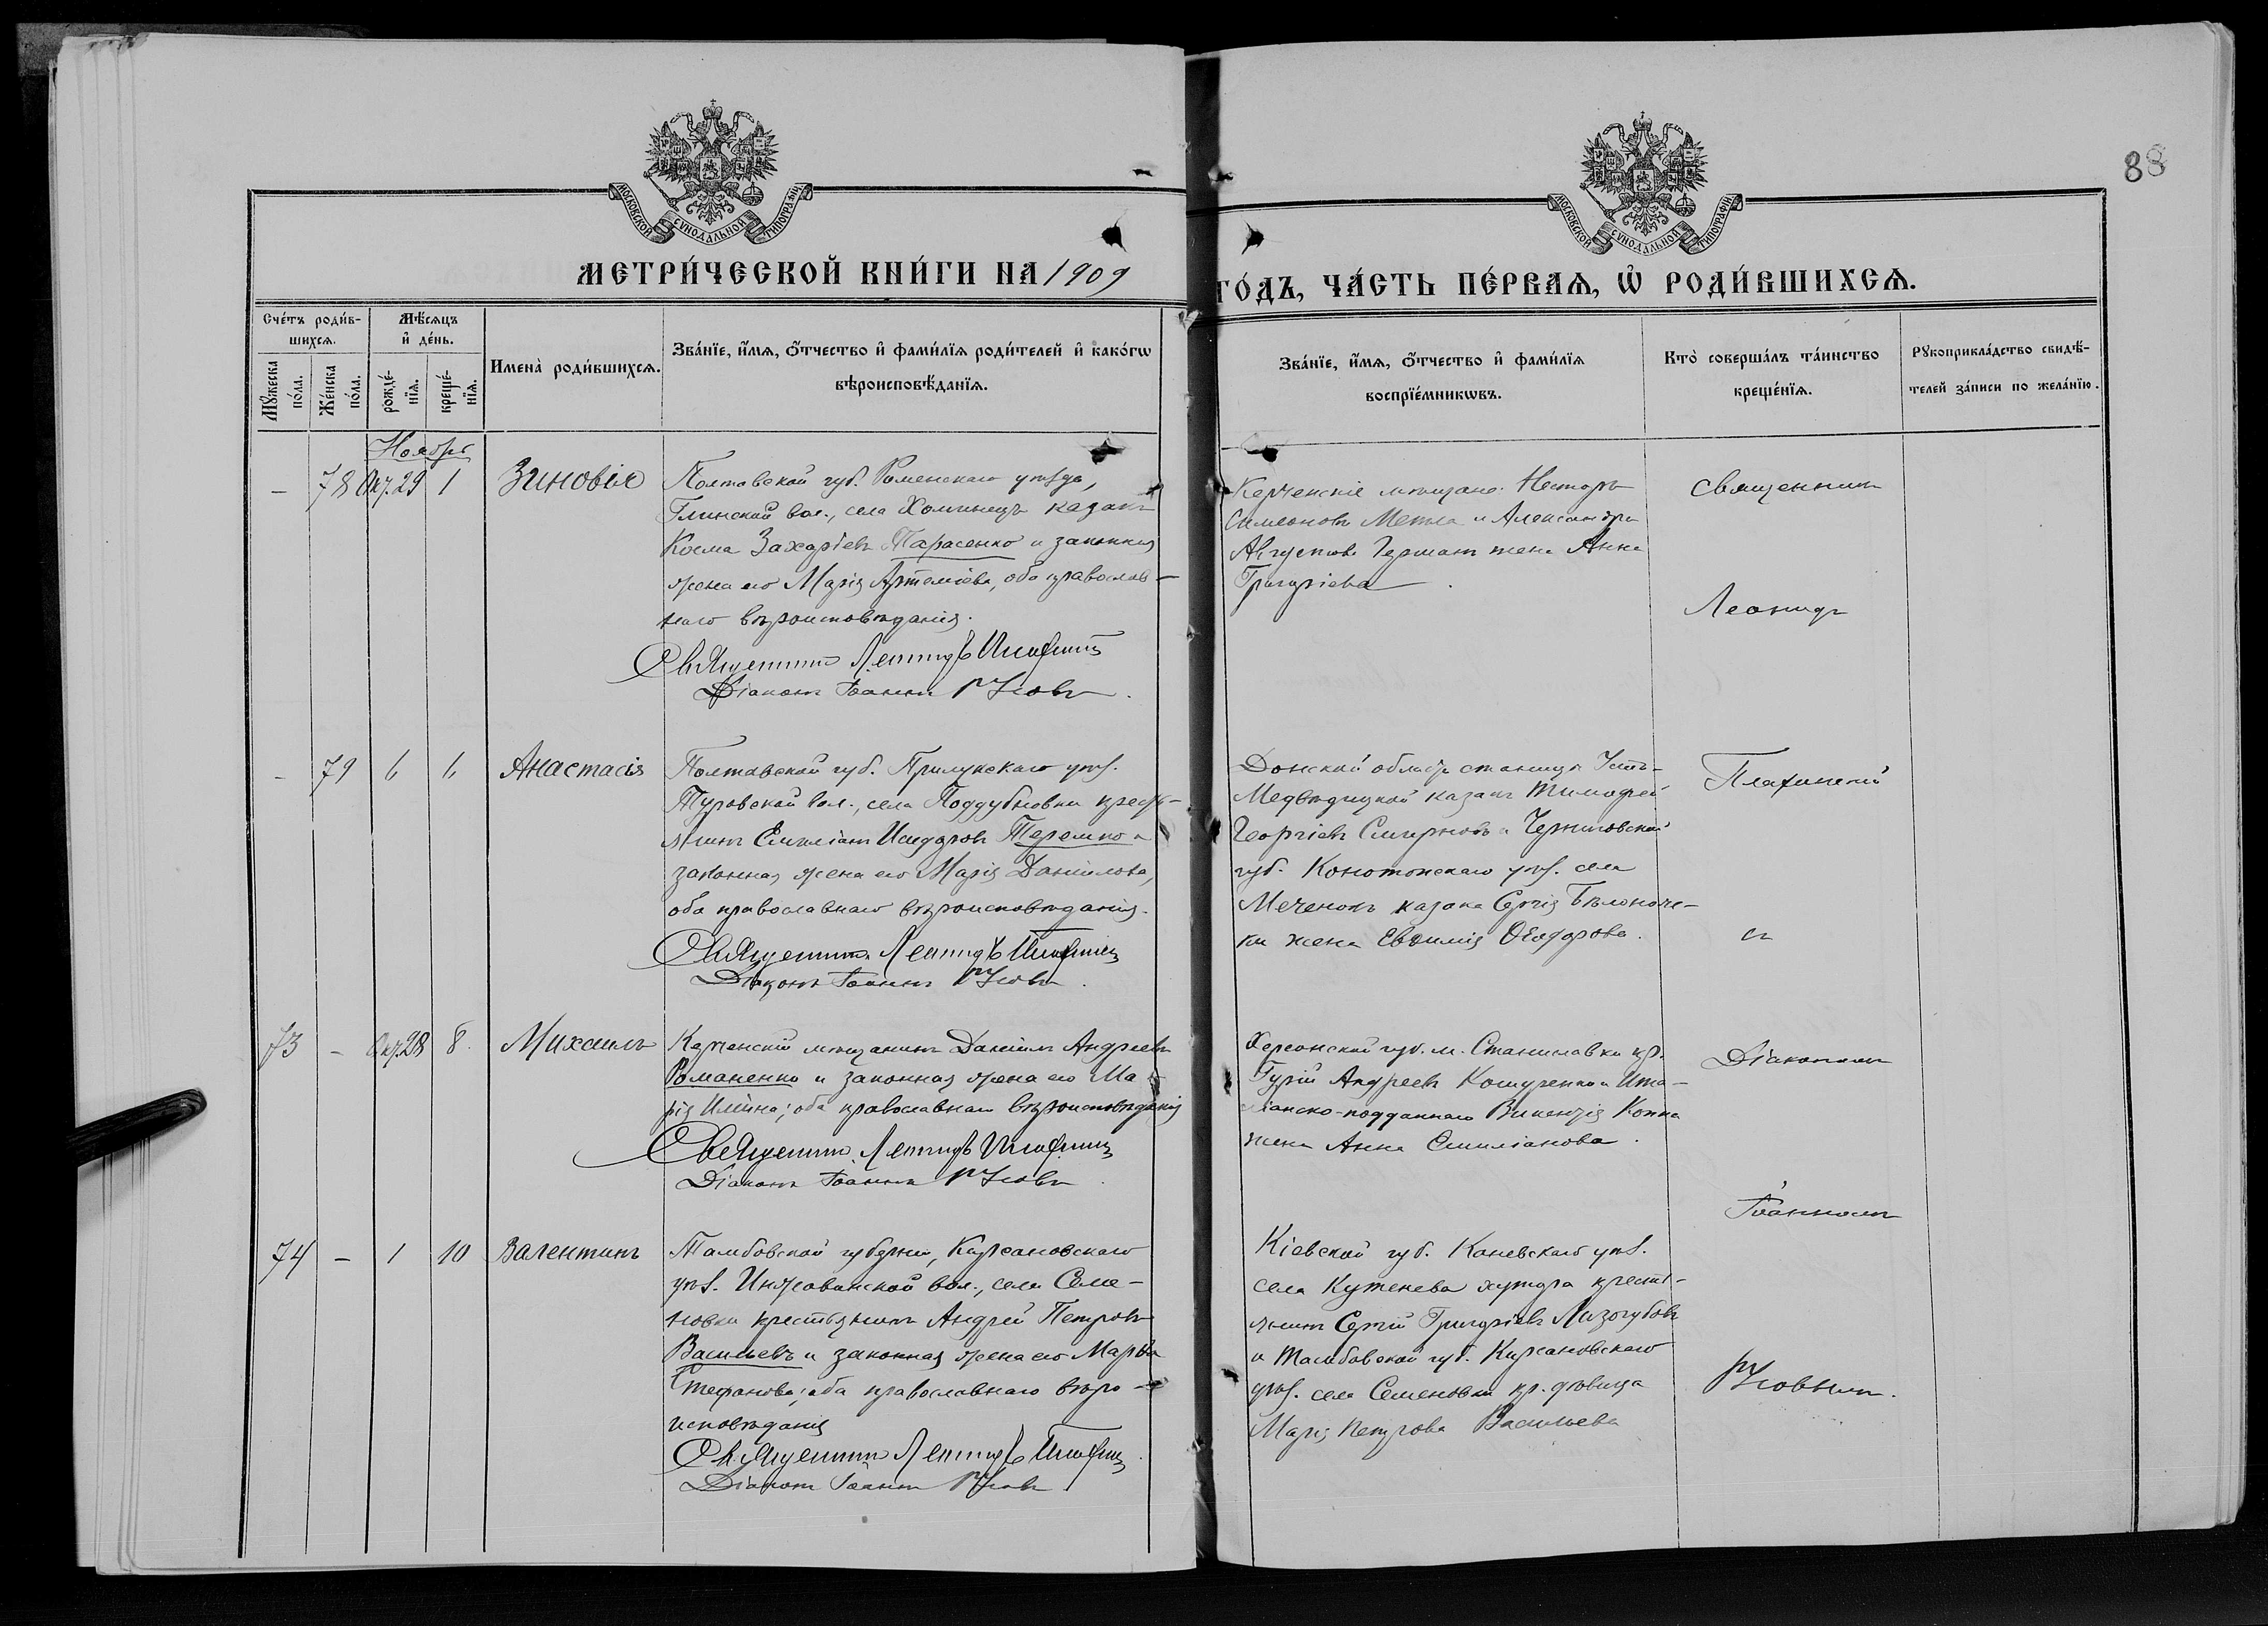 88
МОСКОВСКОЙ СѴНОДАЛЬНОЙ ТИПОГРАФІИ
МОСКОВСКОЙ СѴНОДАЛЬНОЙ ТИПОГРАФІИ
МЕТРИ́ЧЕСКОЙ КНИ́ГИ НА 1909
ГО́ДЪ, ЧА́СТЬ ПЕ́РВАѦ, Ѡ҆ РОДИ́ВШИХСѦ.
Сче́тъ роди́в-
шихсѧ.
Мꙋ́жеска по́ла.
Же́нска по́ла.
Мѣ́сѧцъ
и҆ де́нь.
рожде́-
нїѧ.
креще́-
нїѧ.
Имена̀ роди́вшихсѧ.
Зва́нїе, и҆́мѧ, ѻ҆́тчество и҆ фами́лїѧ роди́телей и҆ како́гѡ
вѣроисповѣ́данїѧ.
Зва́нїе, и҆́мѧ, ѻ҆́тчество и҆ фами́лїѧ
воспрїе́мникѡвъ.
Кто̀ соверша́лъ та́инство
креще́нїѧ.
Рꙋкоприкла́дство свидѣ́-
телей за́писи по жела́нїю.
Ноябрь
– 78 Окт. 29 1 Зиновія
Полтавской губ. Роменскаго уѣзда,
Глинской вол., села Хоминецъ казакъ
Косма Захаріевъ Тарасенко и законная
жена его Марія Артеміева, оба православ-
наго вѣроисповѣданія.
Священникъ Леонидъ
Діаконъ Іоаннъ Усовъ.
Керченскіе мѣщане: Несторъ
Симеоновъ Метла и Александра
Августова Германъ жена Анна
Григоріева.
Священникъ
Леонидъ
– 79 6 6 Анастасія
Полтавской губ. Прилукскаго уѣз.
Туровской вол., села Поддубновки кресть-
янинъ Емиліанъ Исидоровъ Теремко и
законная жена его Марія Даніилова,
оба православнаго вѣроисповѣданія.
Священникъ Леонидъ
Діаконъ Іоаннъ Усовъ.
Донской области станицы Усть-
Медвѣдицкой казакъ Тимофей
Георгіевъ Смирновъ и Черниговской
губ. Конотопскаго уѣз. села
казака Сергія
жена Евѳимія Ѳеодорова.
съ
73 – Окт. 28 8. Михаилъ
Керченскій мѣщанинъ Даніилъ Андреевъ
Романенко и законная жена его Ма-
рія Ильина; оба православнаго вѣроисповѣданія
Священникъ Леонидъ
Діаконъ Іоаннъ Усовъ.
Херсонской губ. м. Станиславки кр.
Гурій Андреевъ и Ита-
ліанско-подданнаго Викентія Копка
жена Анна Емиліанова.
Діакономъ
Іоанномъ
74 – 1 10 Валентинъ
Тамбовской губерніи, Кирсановскаго
уѣз. Инжавинской вол., села Семе-
новки крестьянинъ Андрей Петровъ
Васильевъ и законная жена его Марѳа
Стефанова; оба православнаго вѣро-
исповѣданія
Священникъ Леонидъ
Діаконъ Іоаннъ Усовъ.
Кіевской губ. Каневскаго уѣз.
села хутора кресть-
янинъ Сергій Григоріевъ Лизогубовъ
и Тамбовской губ. Кирсановскаго
уѣз. села Семеновки кр. дѣвица
Марія Петрова Васильева
Усовымъ.